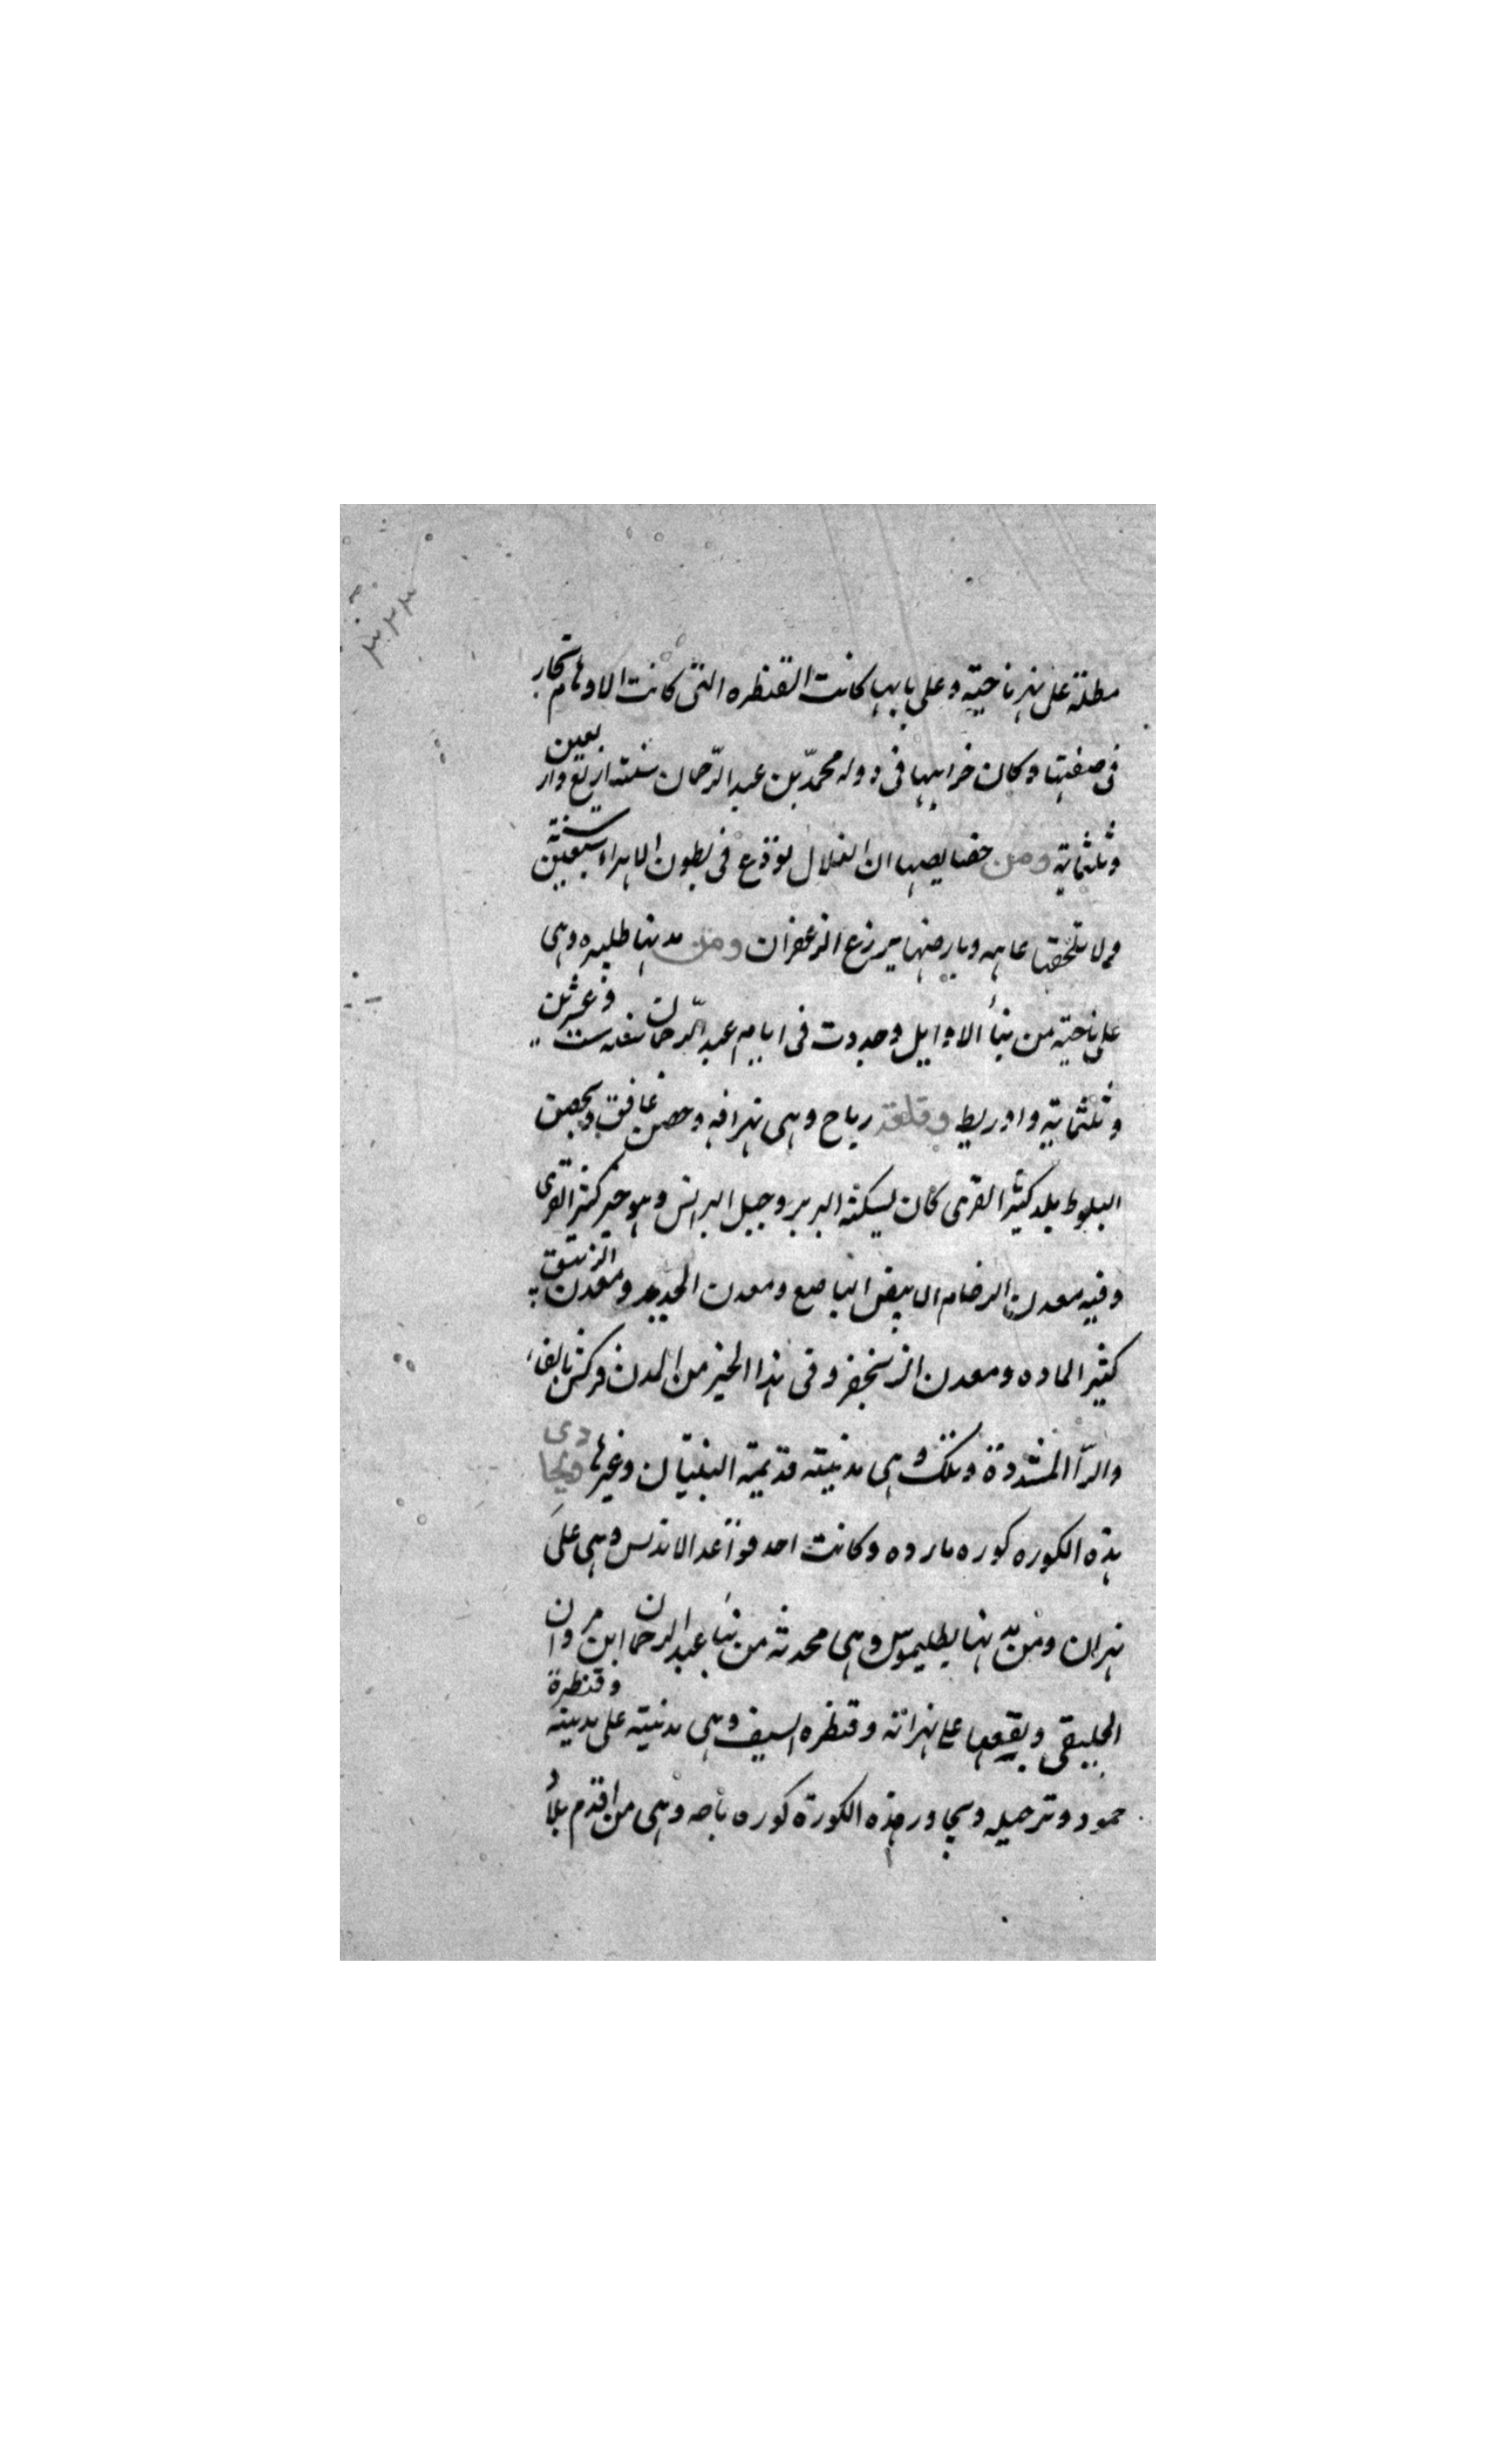 مطلة على نهر ناحية وعلى بابها كانت القنظره التى كانت الاوهام تحار
فى صفتها وكان خرابها فى دوله محمّد بن عبد الرّحمان سنة اربع واربعين
وثلثماية ومن خصايصها ان الغلال توذع فى بطون الاهراء سبعين سنة
ولا تلحقها عاهه وبارضها يزرع الزعفران ومن مدينها طلبيره وهى
على ناحية من بنأ الاوايل وجددت فى ايام عبد الرّحمان سنه ست وعشرين
وثلثماية واوريط وقلعة رباح وهى نهرافه وحصن غافق وفحص
البلوط بلد كثير القرى كان يسكنه البربر وجبل البرانس وهو حيز كثير القرى
وفيه معدن الرخام الابيض الناصع ومعدن الحديد ومعدن الزيبق
كثير الماده ومعدن الزنجفر وفى هذا الحيز من المدن فركش بالفاء
والرّا المشدوة وتلك وهى مدنيته قديمة البنيان وغيرها ويحادى
هذه الكوره كوره مارده وكانت احد قواعد الاندلس وهى على
نهران ومن مدينها بطليموس وهى محدثه من بنأ عبد الرحمان ابن مروان
الجليقى وبقيعها على نهرانه وقنظره السيف وهى مدنيته على مدينة وقنظرة
حمود وترحيله ويجاور هذه الكورة كوره باجه وهى من اقدم بلاد